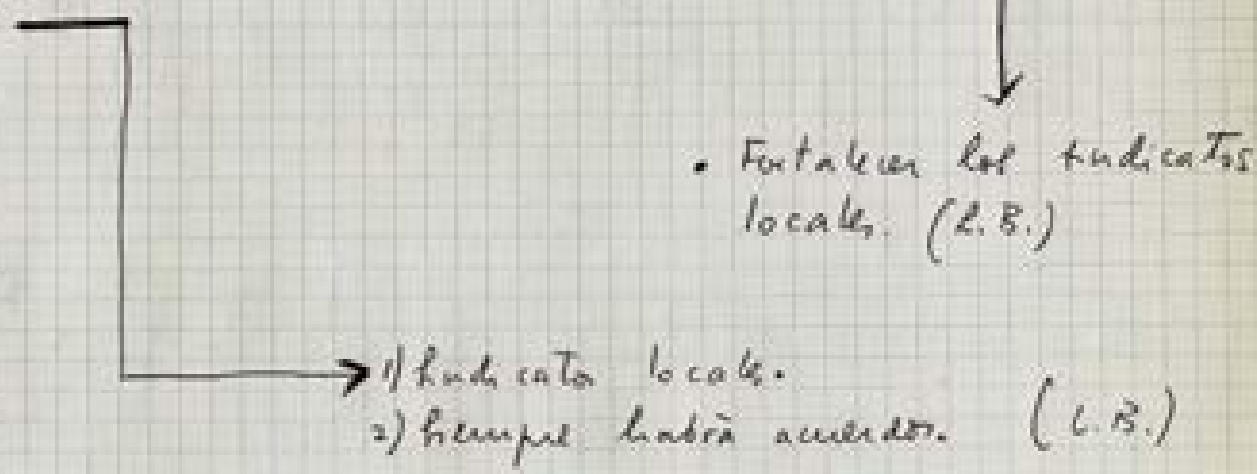 • Fortalecer los sindicatos
locales. (L.B.)
1) Sindicatos locales.
2) Siempre habrá acuerdos. (L.B.)